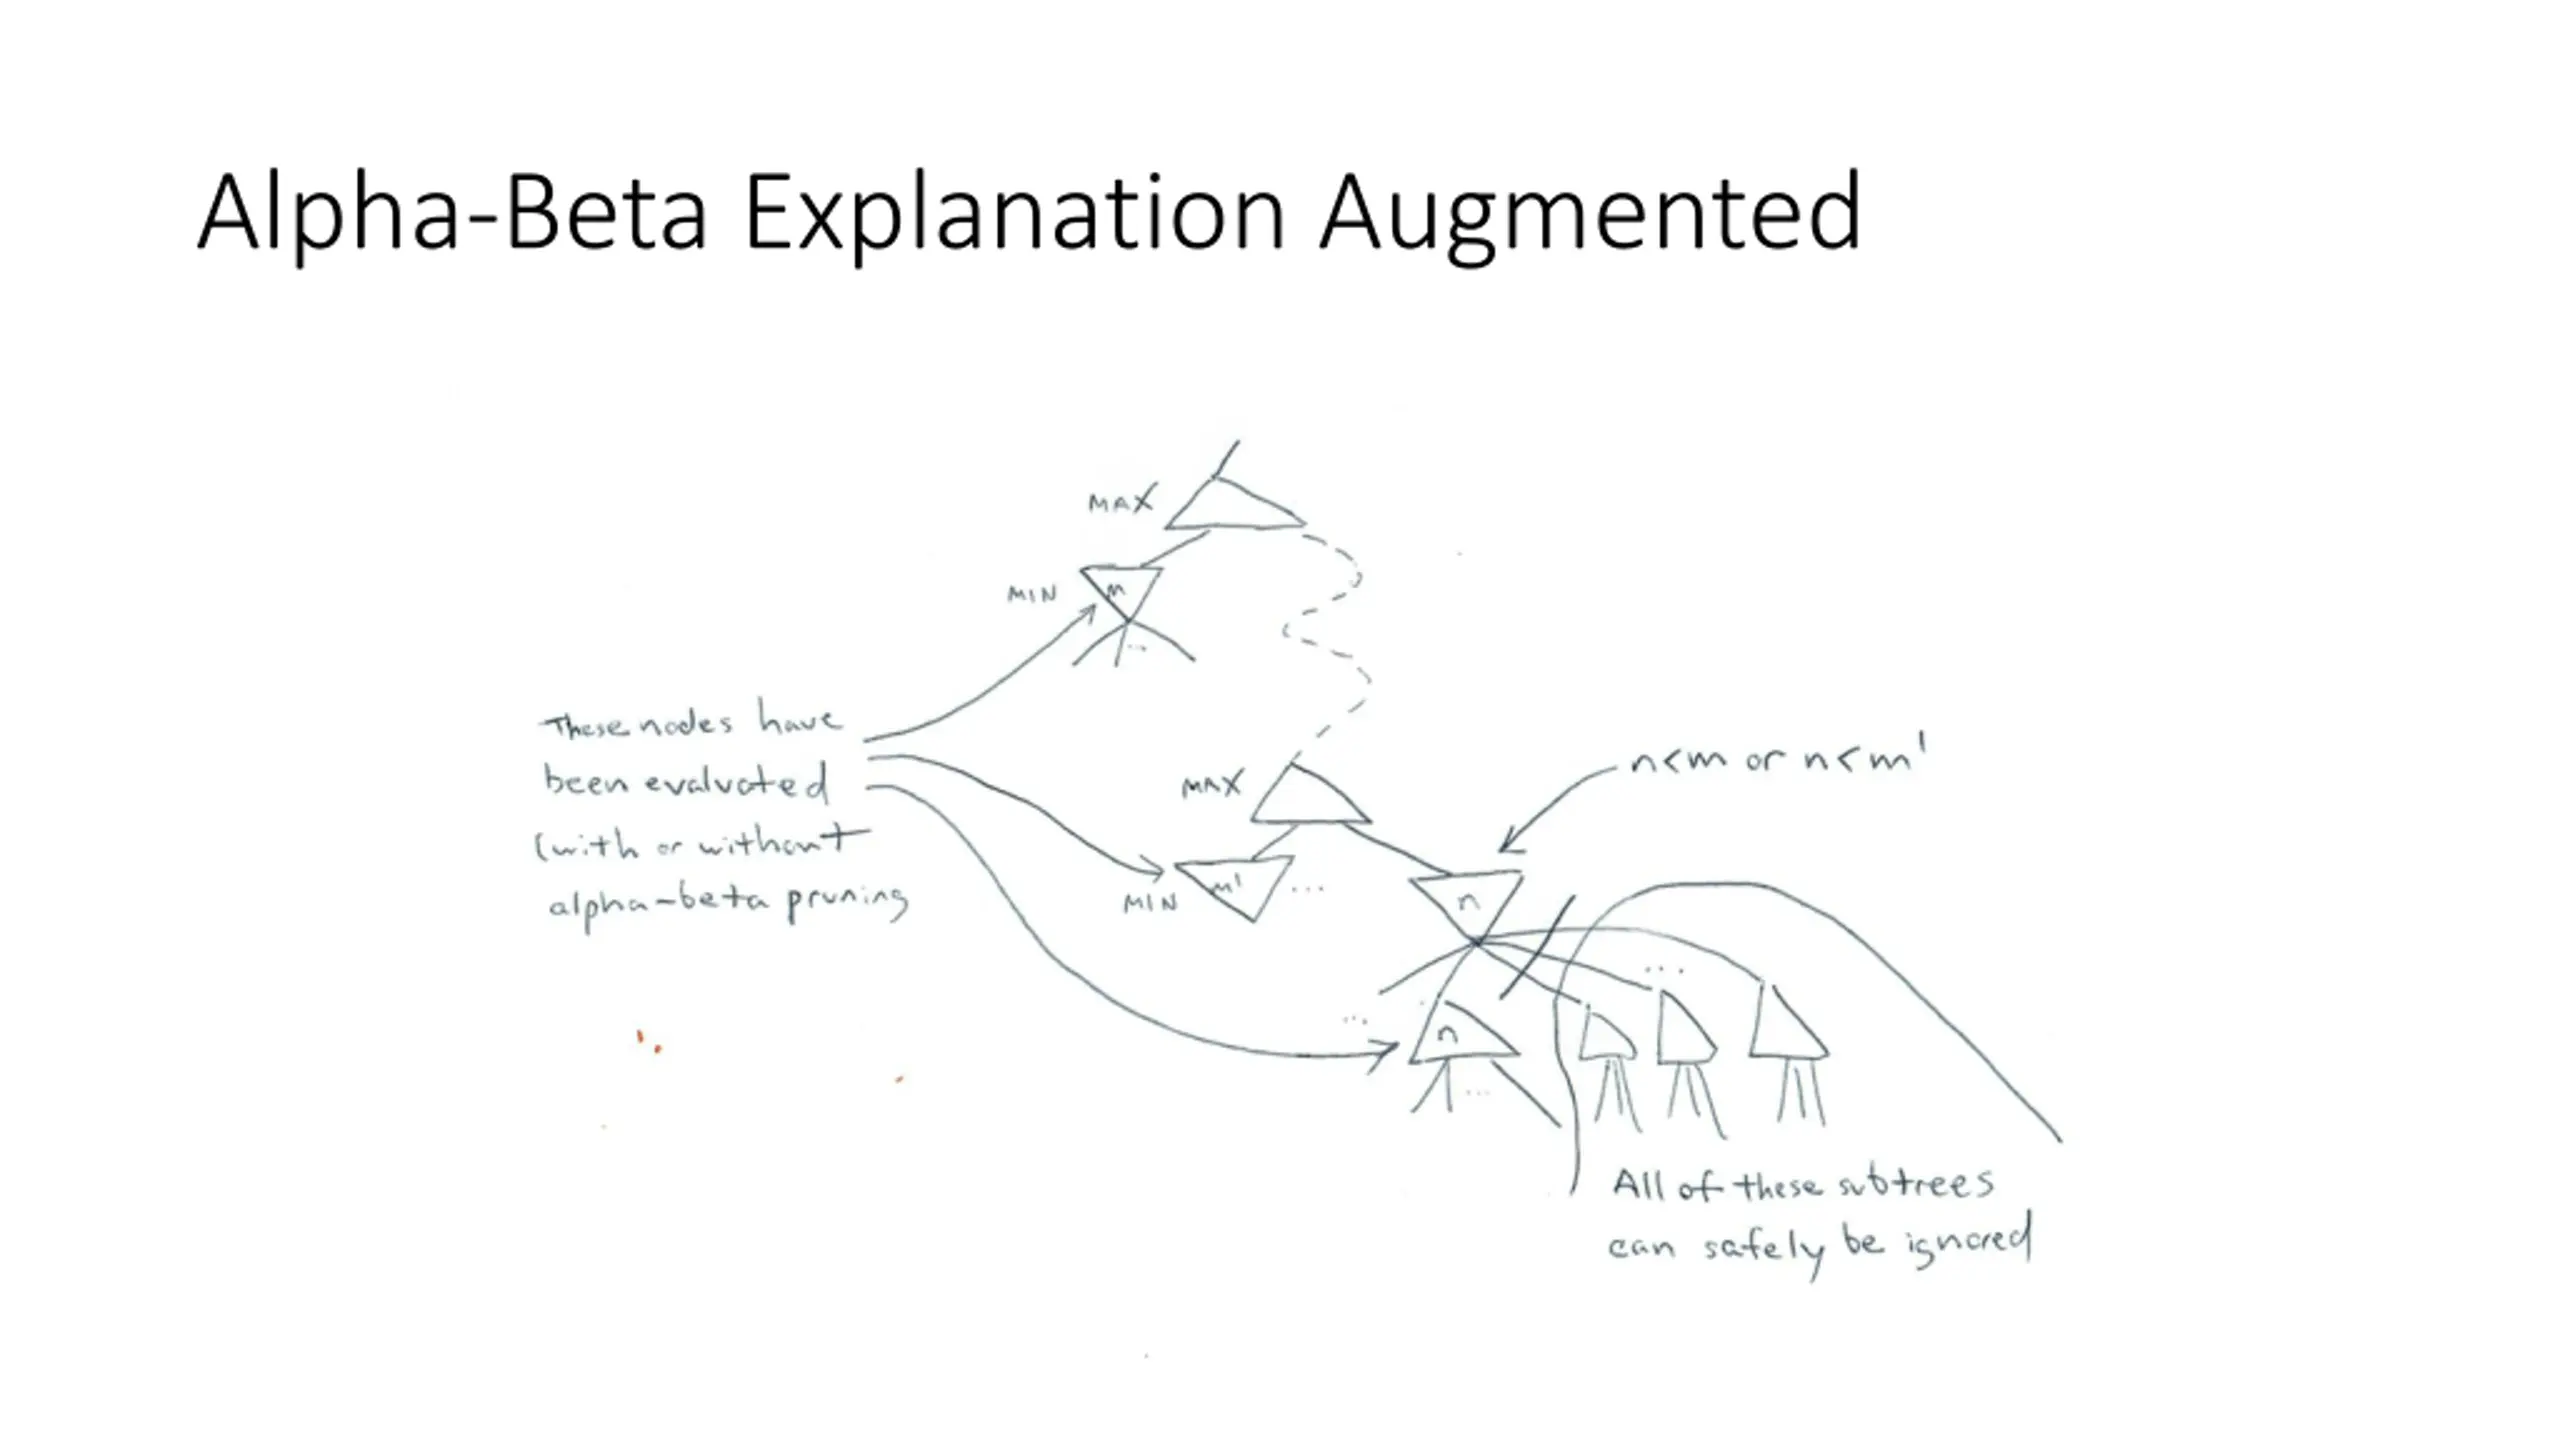 Alpha-Beta Explanation Augmented
MAX
MIN
m
These nodes have
been evaluated
(with or without
alpha-beta pruning
MAX
n<m or n<m'
MIN
m'
...
n
...
...
n
...
All of these subtrees
can safely be ignored